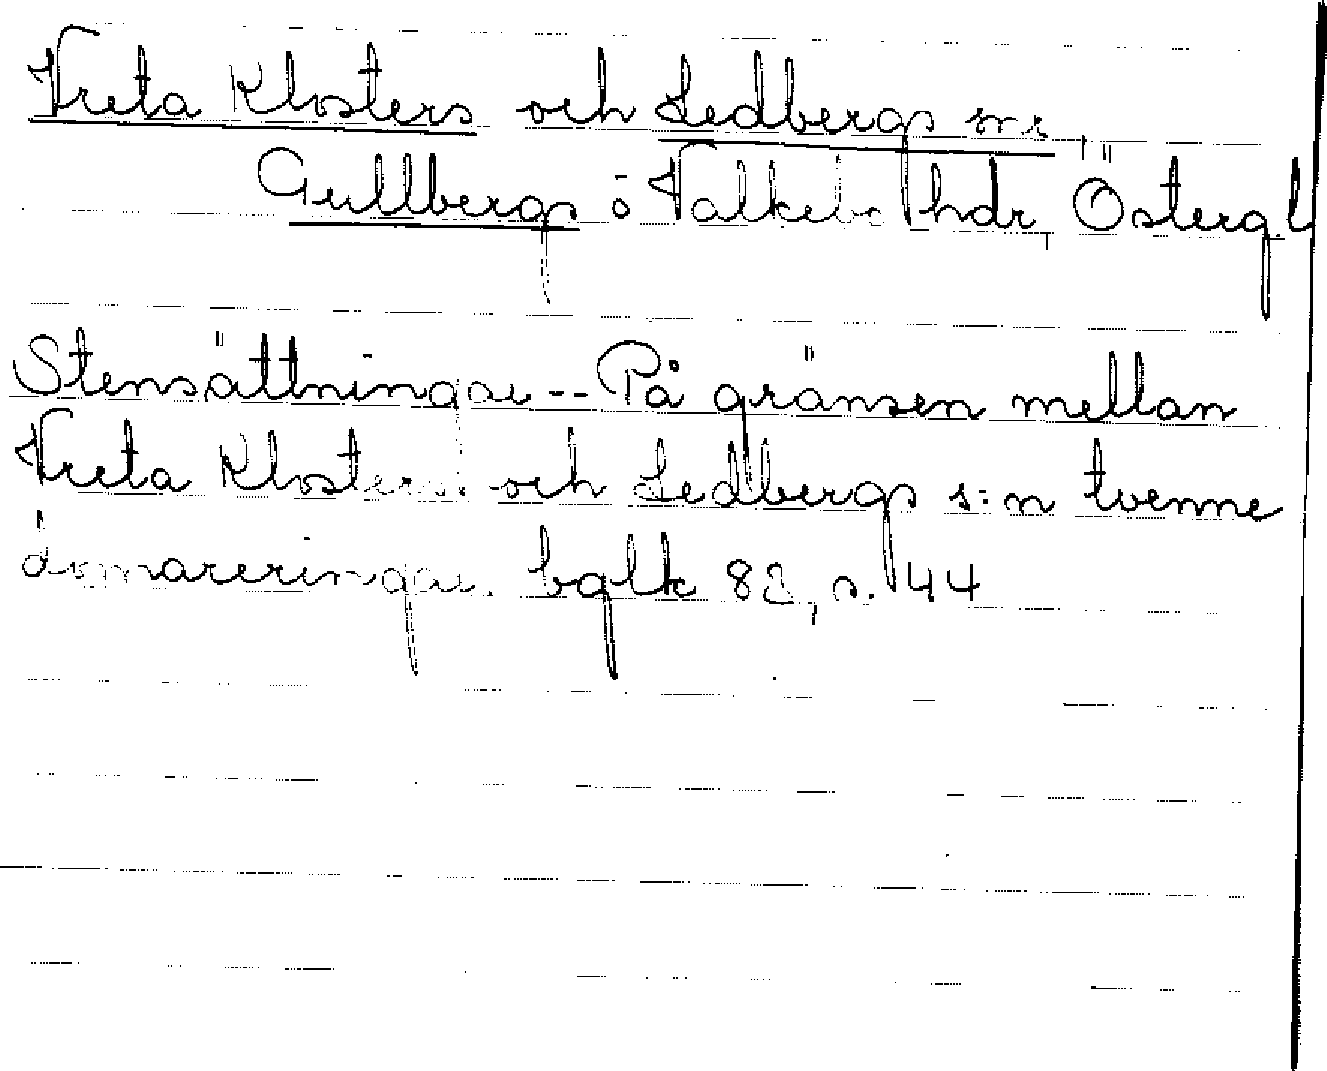 Vreta Klosters och Ledbergs snr,
Gullbergs o Valkebo hdr, Österg.l
Stensättningar -- På gränsen mellan
Vreta Klosters och Ledbergs s:n tvenne
domareringar. bglk 82, s. 44